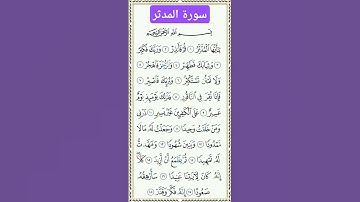 سورة المدثر
بِسْمِ اللَّهِ الرَّحْمَٰنِ الرَّحِيمِ
يَا أَيُّهَا الْمُدَّثِّرُ ١ قُمْ فَأَنذِرْ ٢ وَرَبَّكَ فَكَبِّرْ
٣ وَثِيَابَكَ فَطَهِّرْ ٤ وَالرُّجْزَ فَاهْجُرْ ٥
وَلَا تَمْنُن تَسْتَكْثِرُ ٦ وَلِرَبِّكَ فَاصْبِرْ ٧
فَإِذَا نُقِرَ فِي النَّاقُورِ ٨ فَذَٰلِكَ يَوْمَئِذٍ يَوْمٌ
عَسِيرٌ ٩ عَلَى الْكَافِرِينَ غَيْرُ يَسِيرٍ ١٠ ذَرْنِي
وَمَنْ خَلَقْتُ وَحِيدًا ١١ وَجَعَلْتُ لَهُ مَالًا
مَّمْدُودًا ١٢ وَبَنِينَ شُهُودًا ١٣ وَمَهَّدتُّ
لَهُ تَمْهِيدًا ١٤ ثُمَّ يَطْمَعُ أَنْ أَزِيدَ ١٥ كَلَّا
إِنَّهُ كَانَ لِآيَاتِنَا عَنِيدًا ١٦ سَأُرْهِقُهُ
صَعُودًا ١٧ إِنَّهُ فَكَّرَ وَقَدَّرَ ١٨